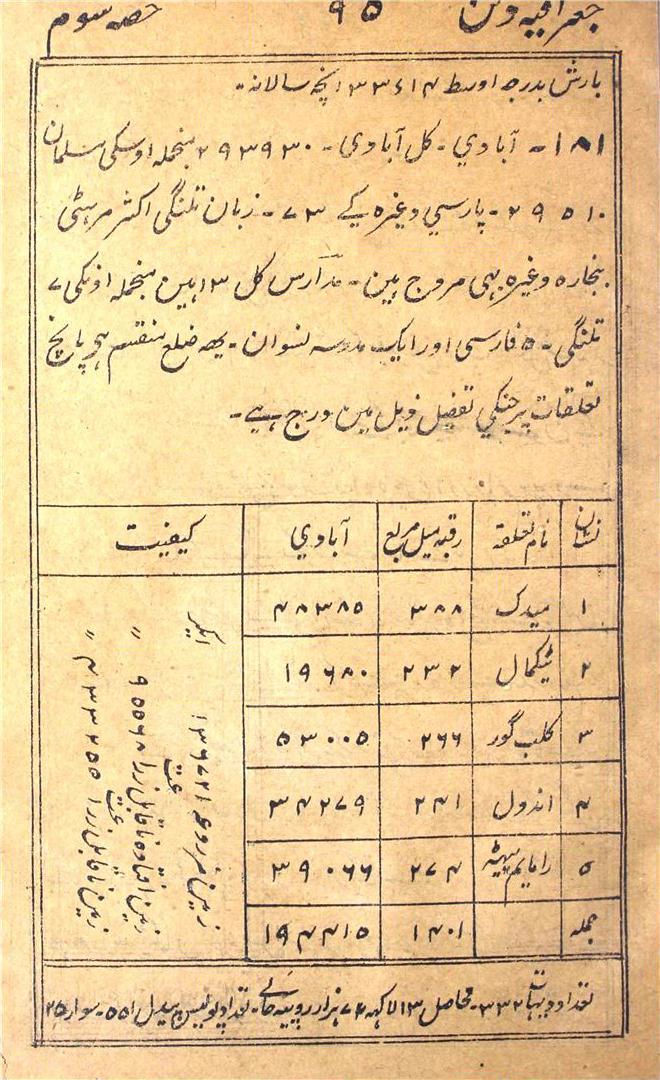 جغرافیہ دکن ۹۵ حصہ سوم
بارش بدرجہ اوسط ۳۳۶۱۴ انچہ سالانہ۔
۱۸۱۔ آبادی۔ کل آبادی۔ ۲۹۳۹۳۰ منجملہ اوسکی مسلمان
۲۹۵۱۰۔ پارسی وغیرہ کے ۷۳۔ زبان تلنگی اکثر مرہٹی
بنجارہ وغیرہ بہی مروج ہین۔ مدارس کل ۱۳ ہین منجملہ اونکی ۷
تلنگی۔ ۵ فارسی اور ایک مدرسہ نسوان۔ یہہ ضلع منقسم ہو پانچ
تعلقات پر جنکی تفصیل ذیل مین درج ہے۔
نشان نام تعلقہ رقبہ میل مربع آبادی کیفیت
۱ میدک ۳۸۸ ۴۸۳۸۵
۲ ٹیکمال ۲۳۲ ۱۹۶۸۰
۳ کلب گور ۲۶۶ ۵۳۰۰۵
۴ اندول ۲۴۱ ۳۴۲۷۹
۵ رامایم پیٹہ ۲۷۴ ۳۹۰۶۶
جملہ ۱۴۰۱ ۱۹۴۴۱۵
زمین مزروعہ ۱۳۶۷۲۱ ایکر
زمین افتادہ ناقابل زراعت ۹۵۵۶۸ ״
زمین ناقابل زراعت ۴۳۳۲۵۵ ״
تعداد دیہات ۳۳۲۔ محاصل ۱۳ لاکہہ ۷۴ ہزار روپیہ حالی۔ تعداد پولیس پیدل ۵۵۱۔ سوار ۲۵